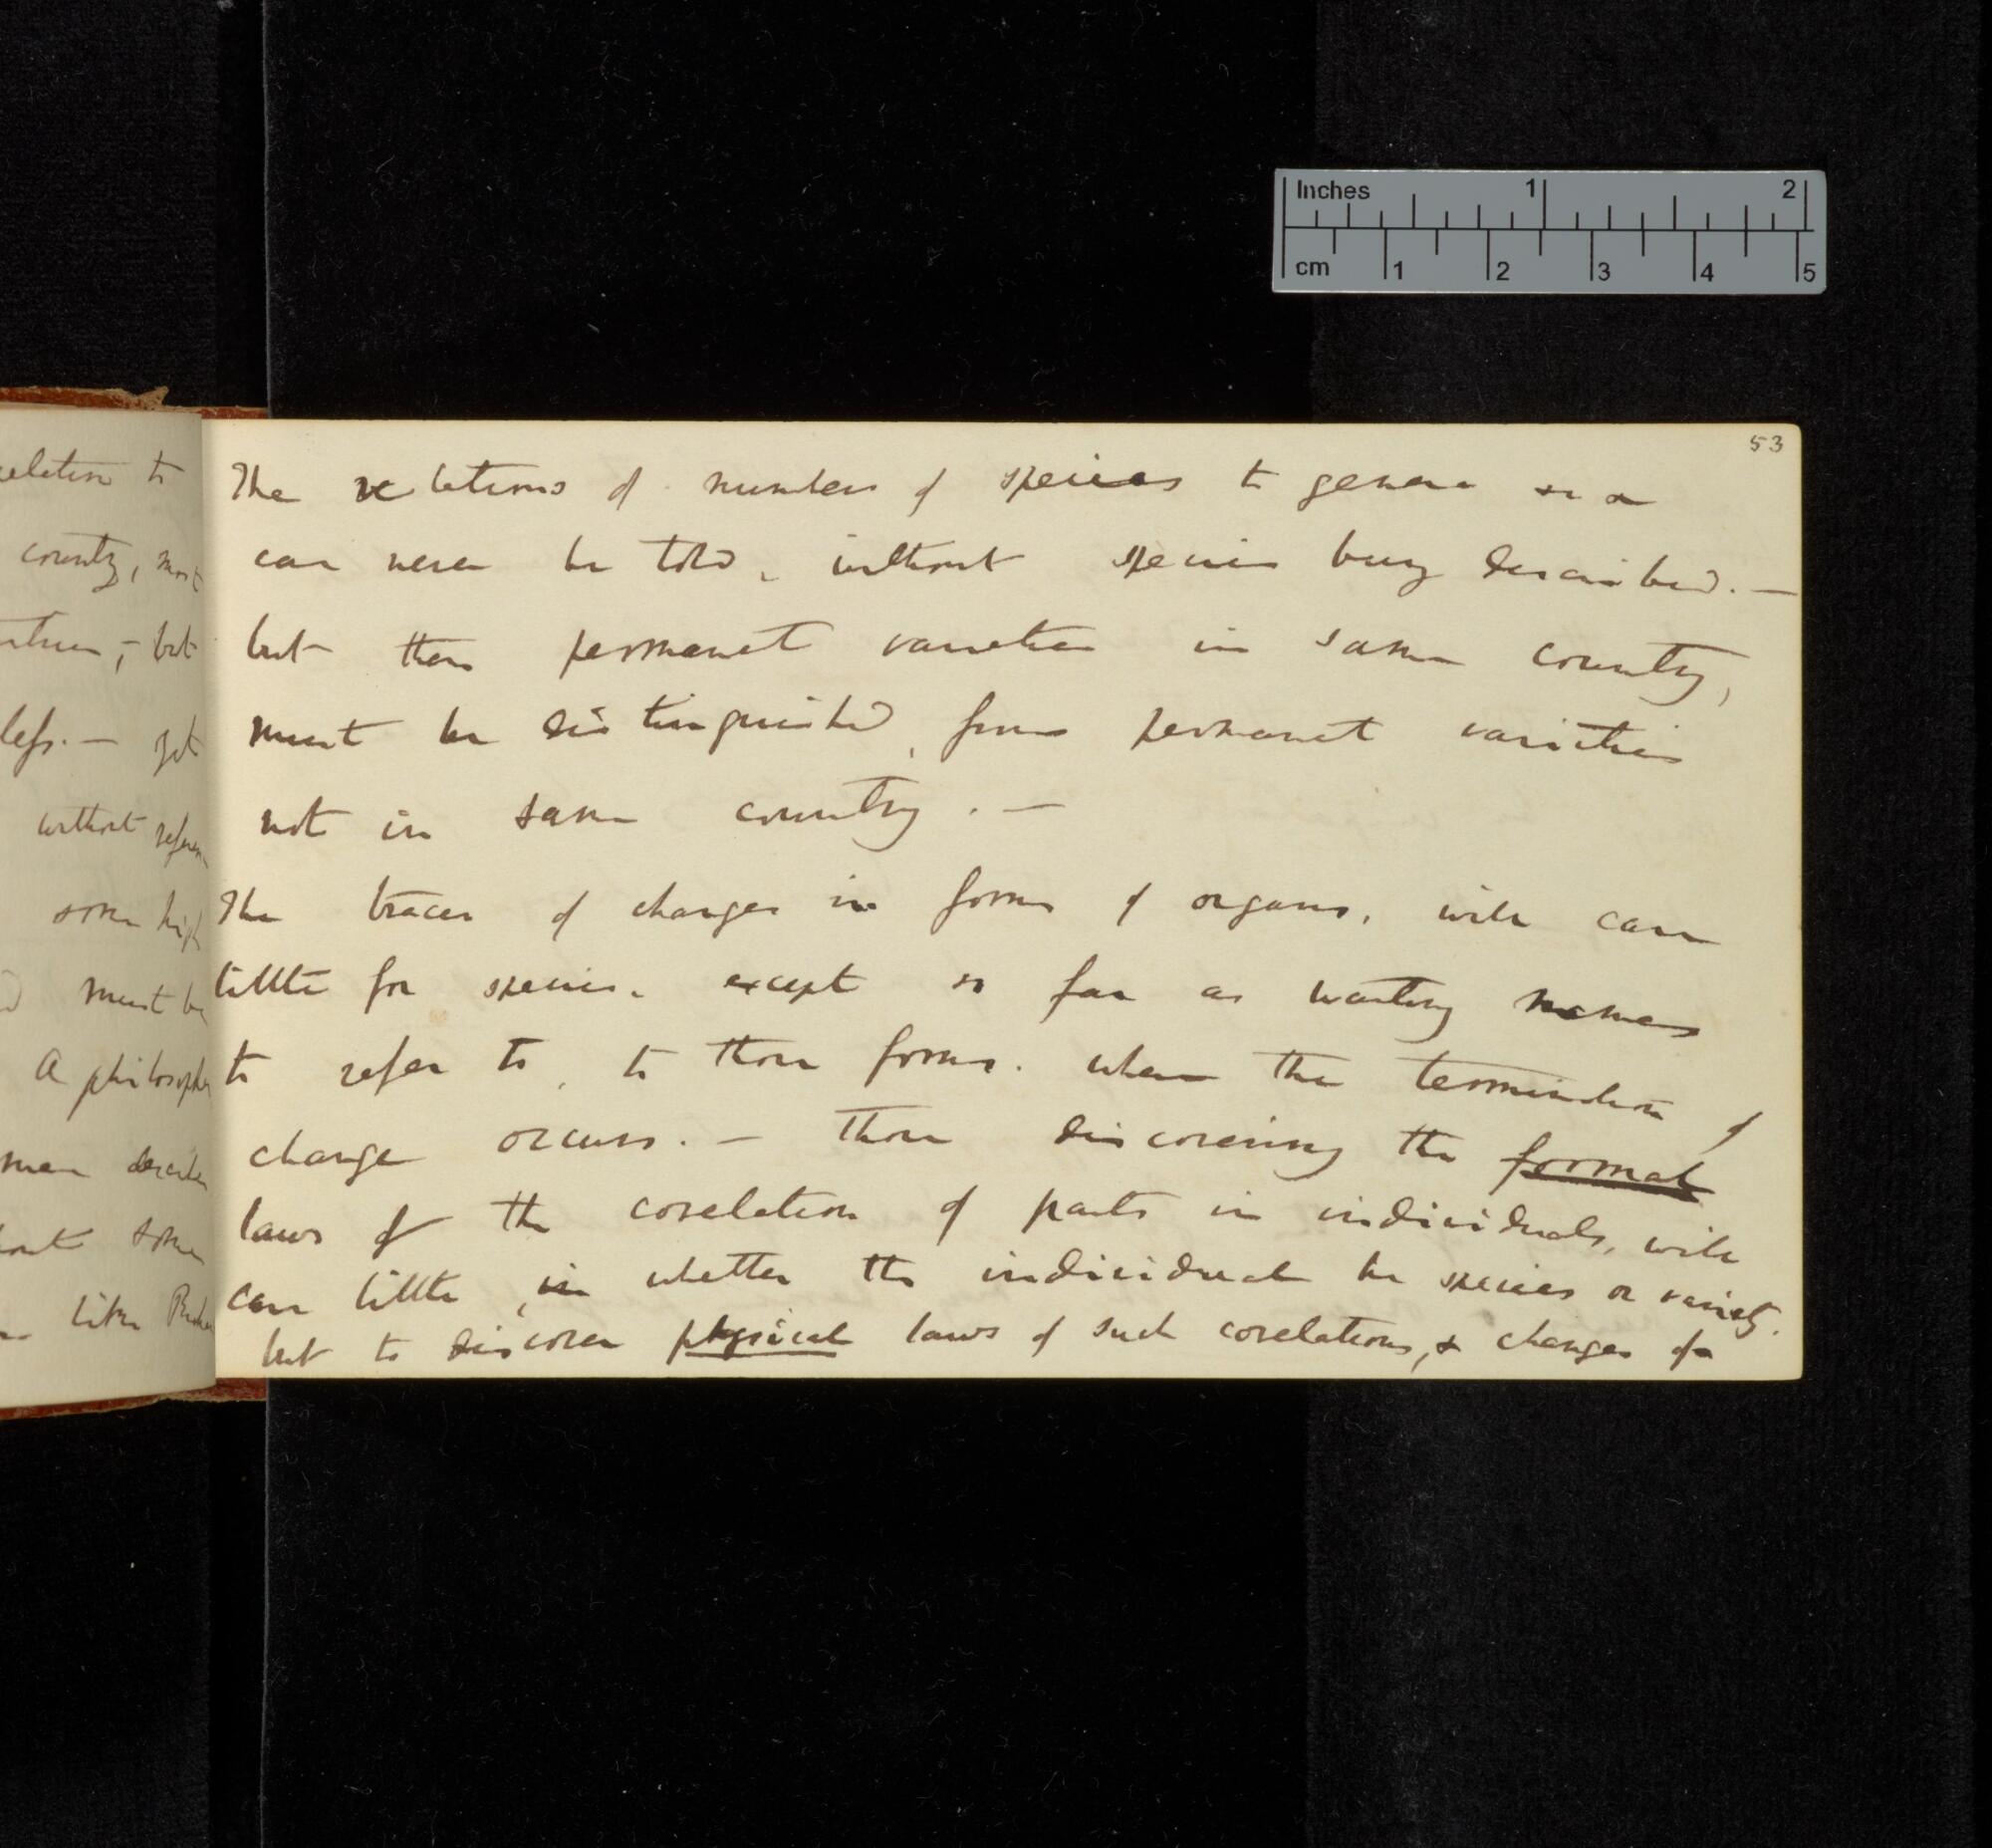 Inches 1 2
cm 1 2 3 4 5
53
relation to
county, most
but
less. — yet
without referen
some high
must be
A philosopher
men describe
some
like
The relations of numbers of species to genera &c &c
can never be told, without species being described. —
but then permanent varieties in same country,
must be distinguished, from permanent varieties
not in same country. —
The tracer of changes in forms of organs, will care
little for species. except so far as wanting names
to refer to, to those forms. where the termination of
change occurs. — Those discovering the formal
laws of the corelation of parts in individuals, will
care little, in whether the individual be species or variety.
but to discover physical laws of such corelations, & changes of